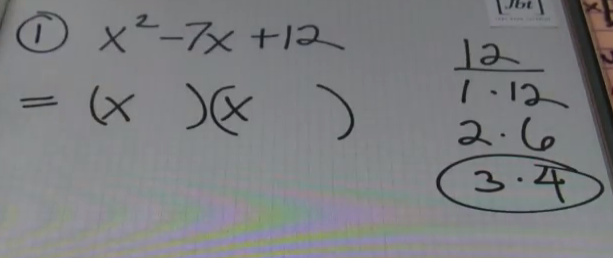 ① x²-7x+12
= (x  )(x  )
12
1·12
2·6
3·4